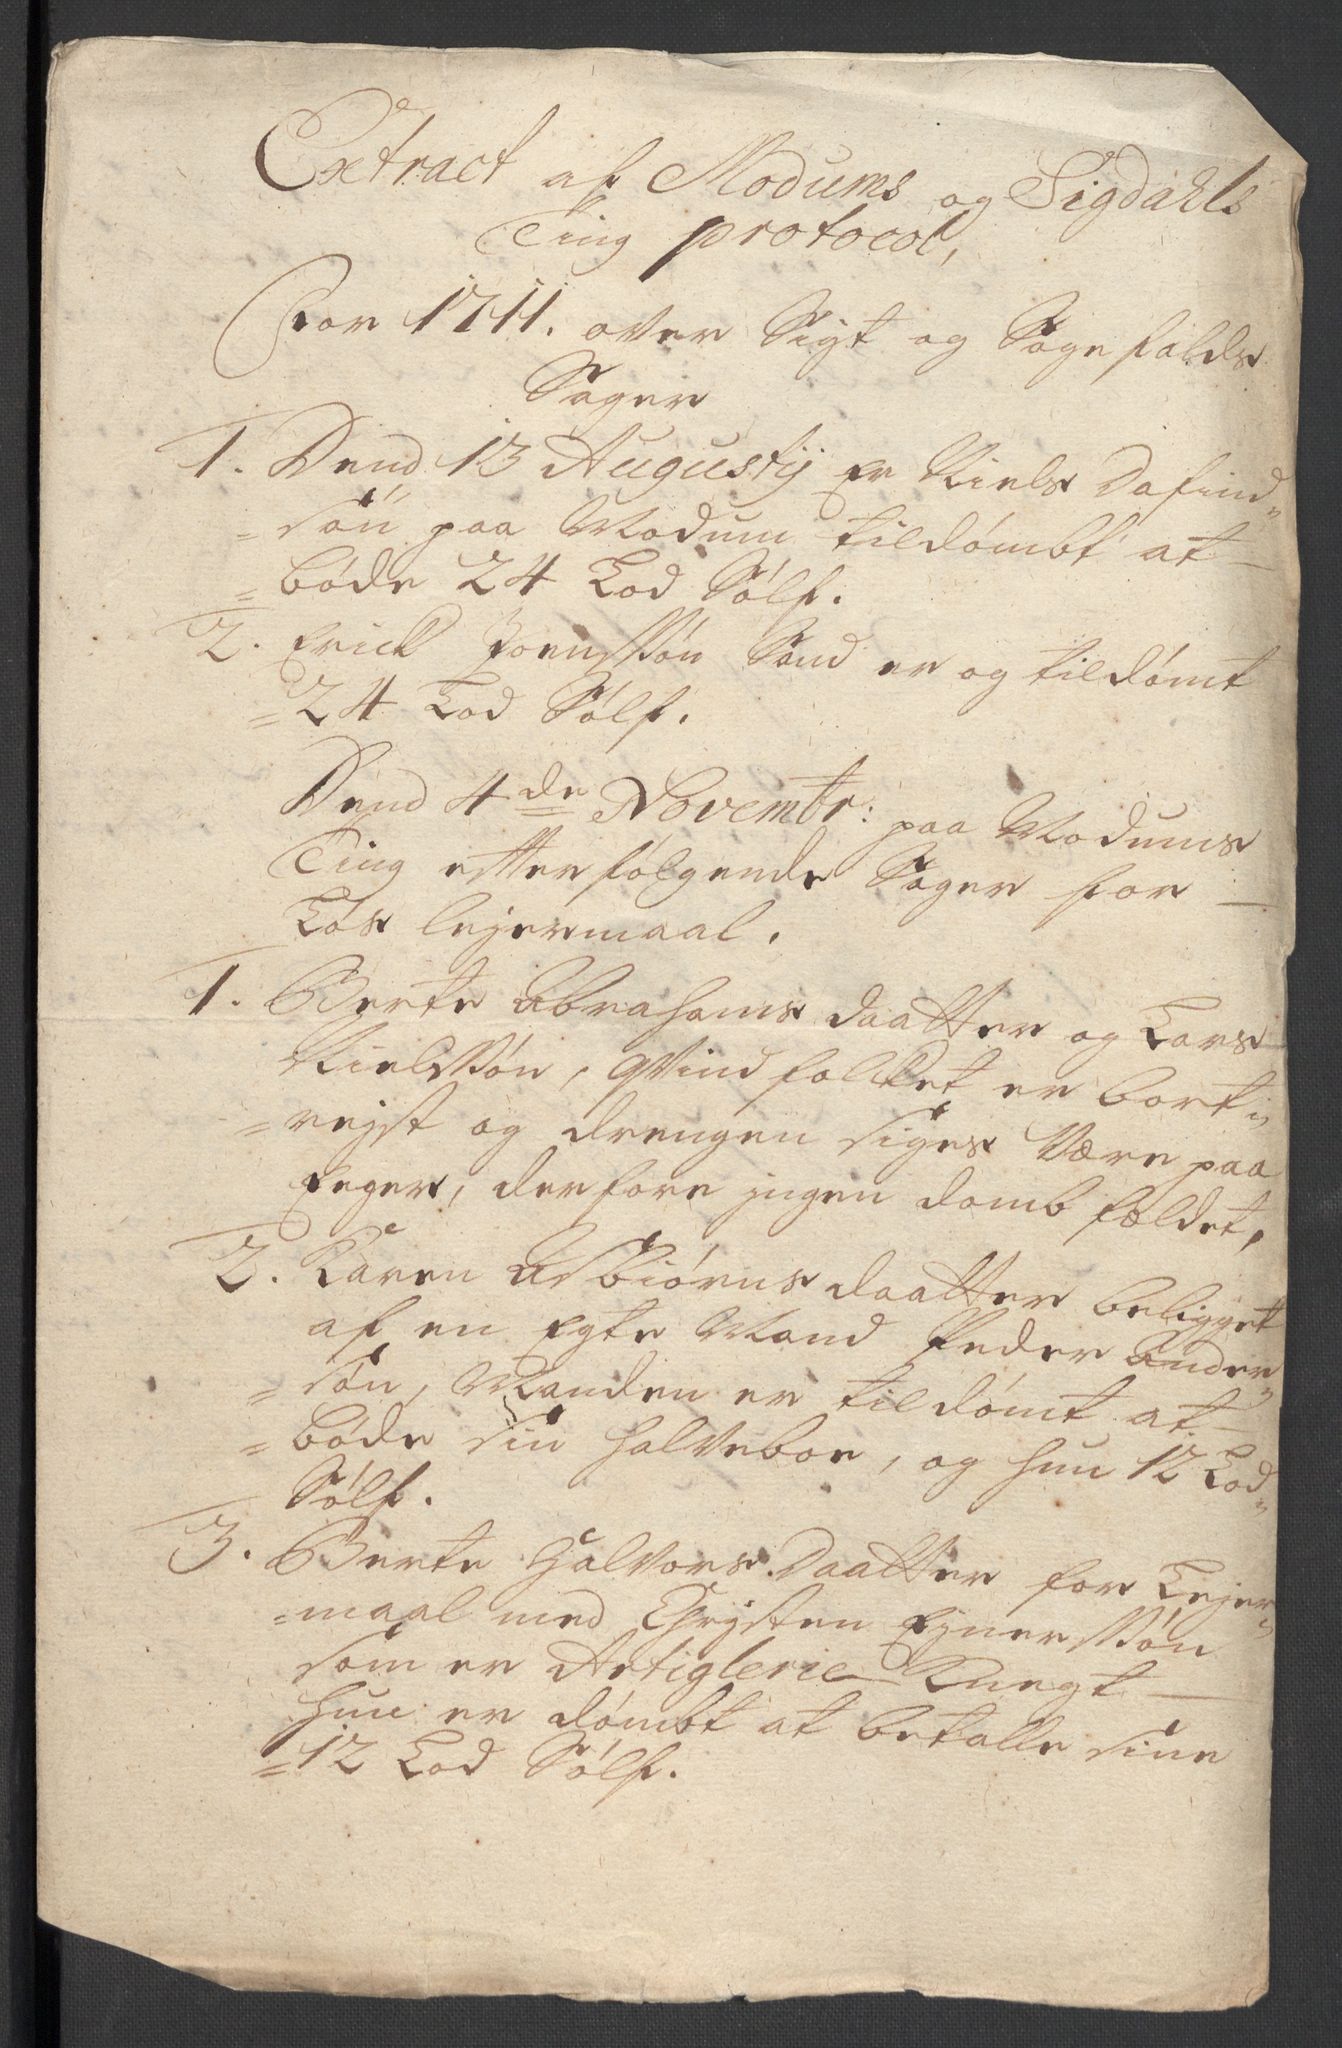 Extract af Modums og Sigdahls
Ting protocol,
For 1711. over Sigt og Sagefalds
Sager
1. Dend 13 Augustij Er Niels Dafind
=søn paa Modum tildømbt at
=bøde 24 Lod Sølf.
2. Erick Joensøn Sand er og tildømt
=24 Lod Sølf.
Dend 4de Novembr: paa Modums
Ting efterfølgende Sager for
Løs lejermaal.
1. Berte Abrahams daatter og Lars
Nielsøn, qvindfolcket er bort
=rejst og drengen siges Være paa
Eeger, derfore jngen domb fældet,
2. Karen Asbiørns daatter beligget
af en Egte Mand Peder Ander
=søn, Manden er tildømt at
=bøde sin halveboe, og hun 12 Lod
Sølf.
3. Berte Halvors Daatter for Lejer
=maal med Chrjsten Ejnersøn
som er Artiglerie Knegt
hun er dømbt at betalle sine
=12 Lod Sølf.